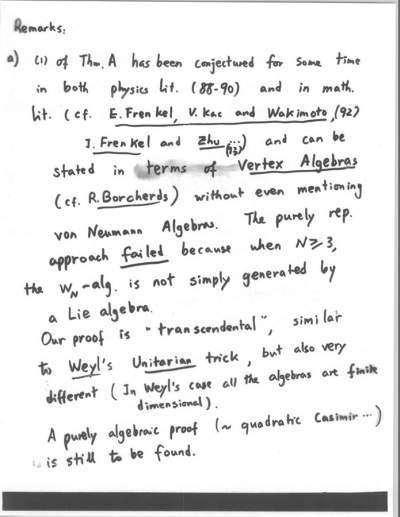 Remarks:
a) (1) of Thm. A has been conjectured for some time
in both physics lit. (88-90) and in math.
lit. (cf. E. Frenkel, V. Kac and Wakimoto, (92)
I. Frenkel and Zhu ... (93)) and can be
stated in terms of Vertex Algebras
(cf. R. Borcherds) without even mentioning
von Neumann Algebras. The purely rep.
approach failed because when N ≥ 3,
the W_N-alg. is not simply generated by
a Lie algebra.
Our proof is "transcendental", similar
to Weyl's Unitarian trick, but also very
different (In Weyl's case all the algebras are finite
dimensional).
A purely algebraic proof (~ quadratic Casimir ...)
is still to be found.